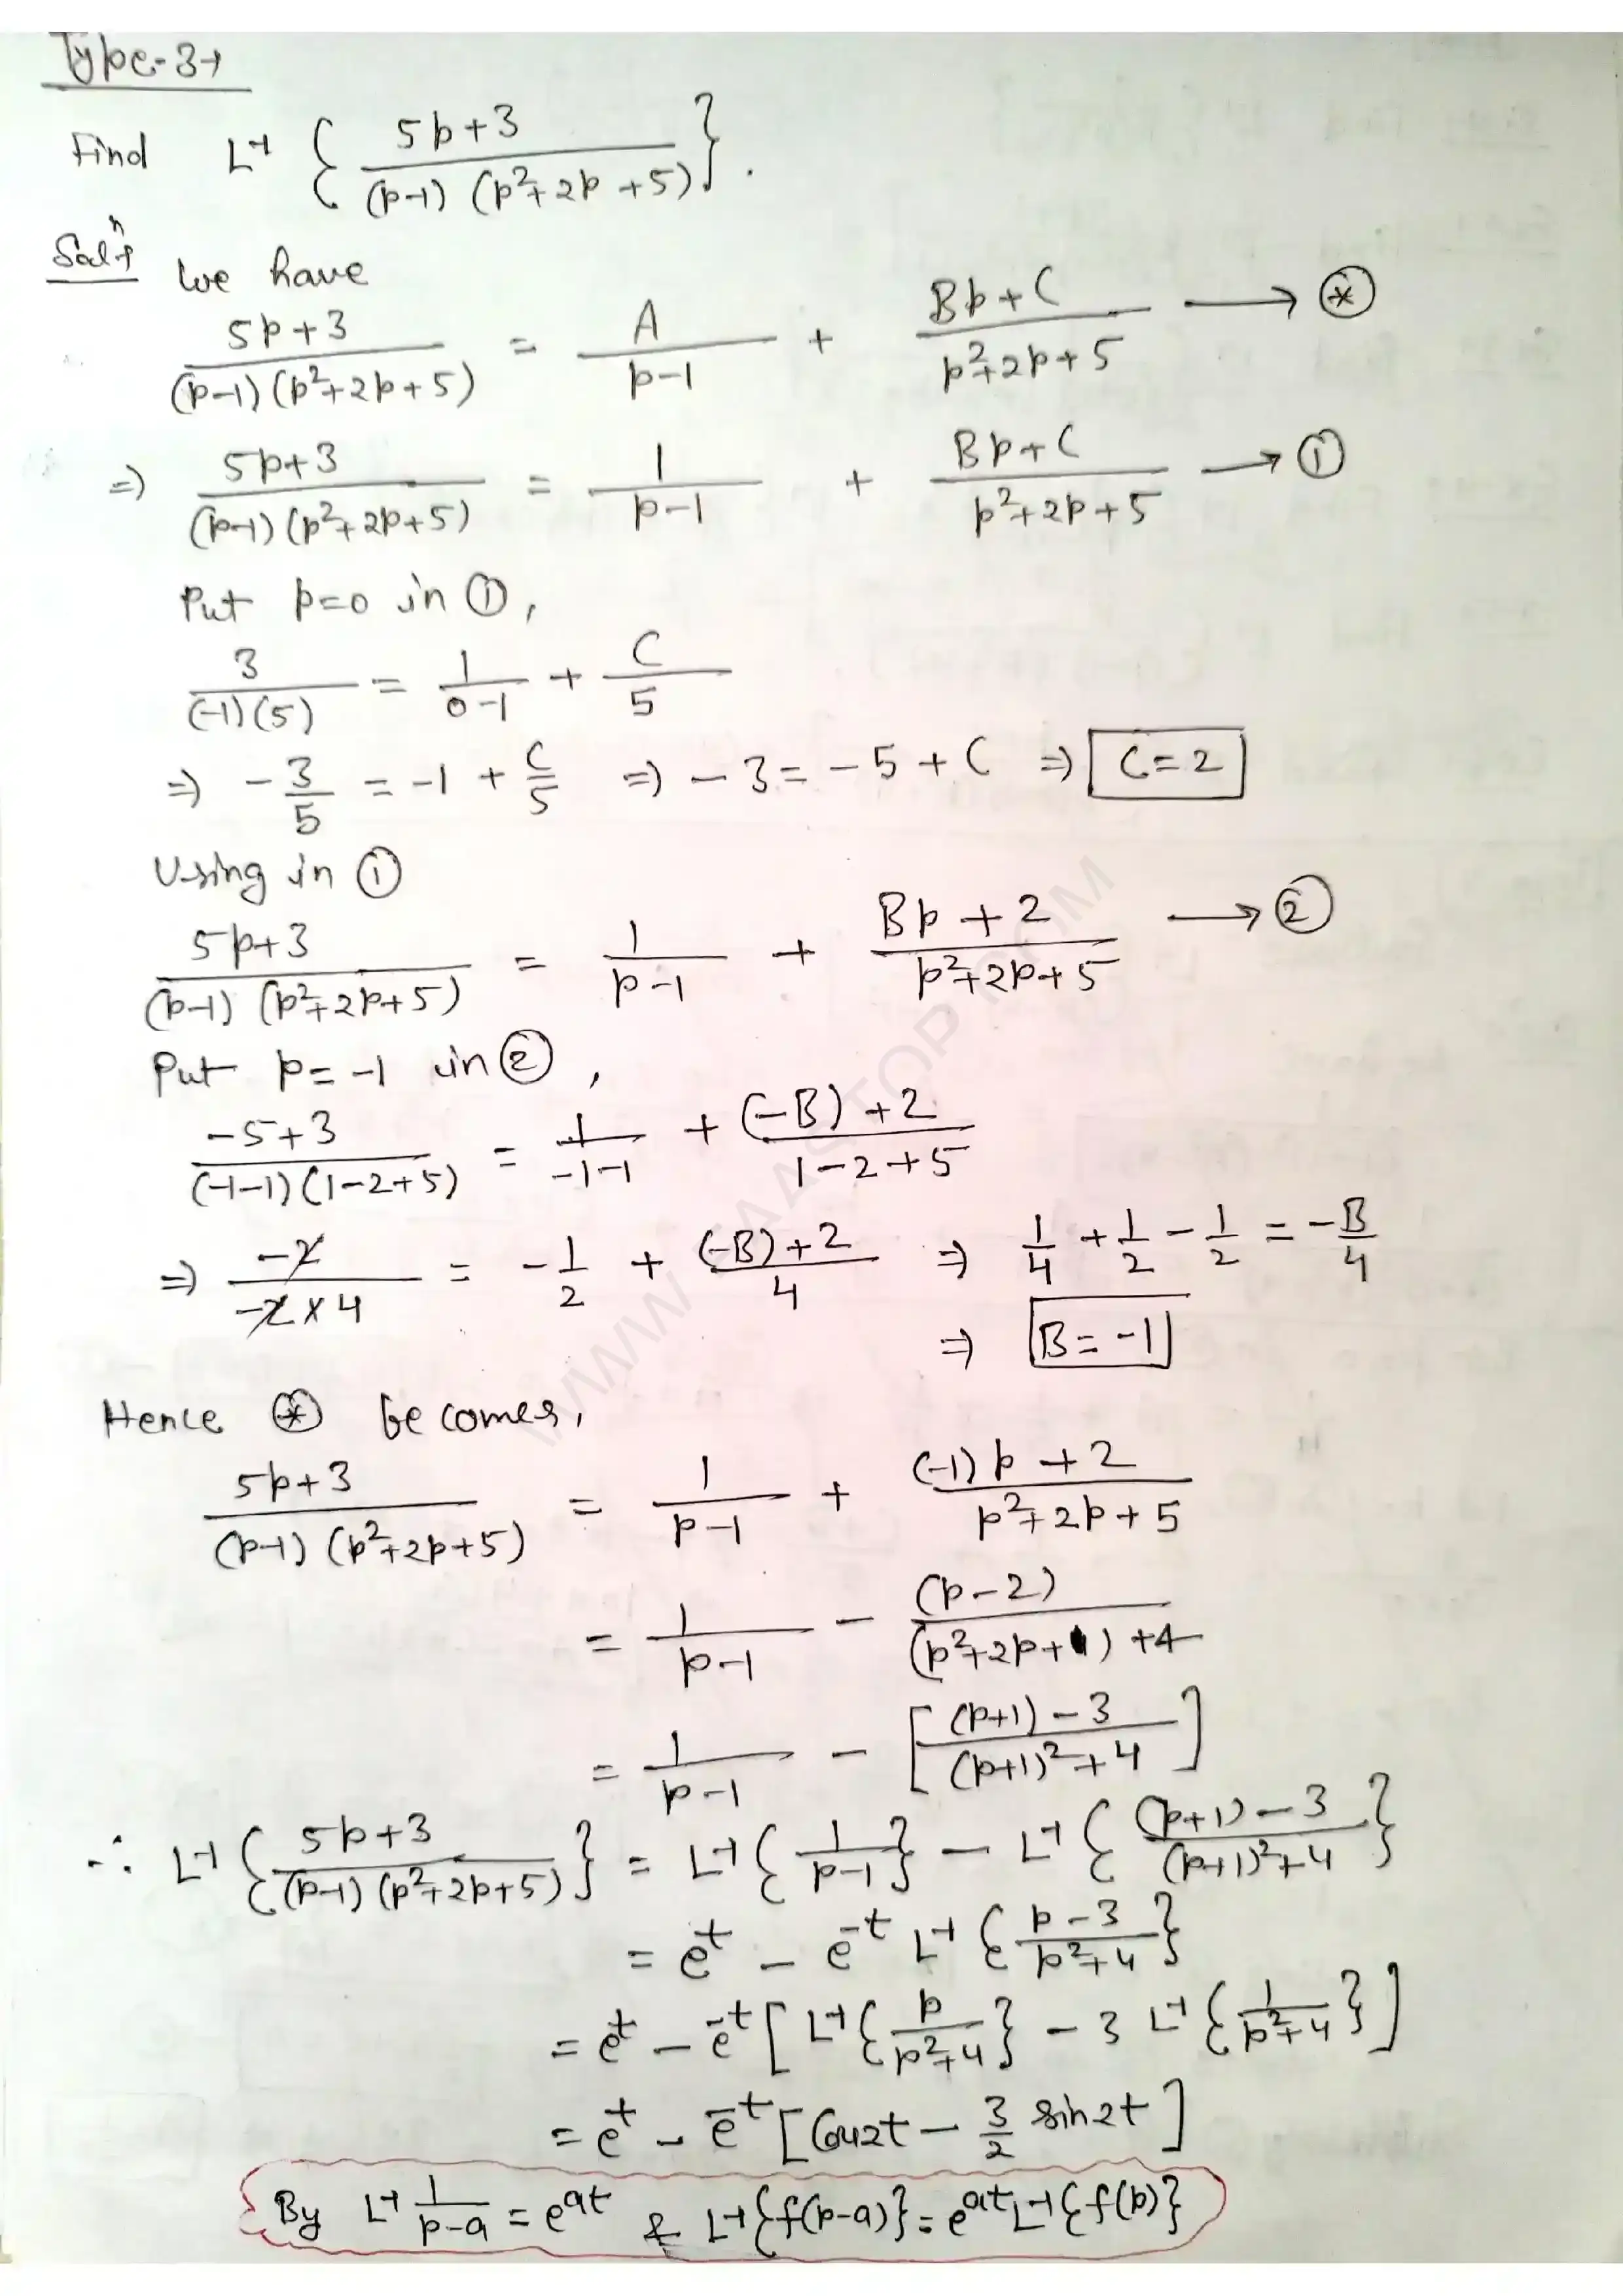 Type-3→
Find L⁻¹ { (5p+3) / ((p-1) (p²+2p+5)) }.
Solⁿ: We have
(5p+3) / ((p-1)(p²+2p+5)) = A/(p-1) + (Bp+C)/(p²+2p+5) → ⊛
⇒ (5p+3) / ((p-1)(p²+2p+5)) = 1/(p-1) + (Bp+C)/(p²+2p+5) → ①
Put p=0 in ①,
3/((-1)(5)) = 1/(0-1) + C/5
⇒ -3/5 = -1 + C/5 ⇒ -3 = -5 + C ⇒ C=2
Using in ①
(5p+3) / ((p-1) (p²+2p+5)) = 1/(p-1) + (Bp+2)/(p²+2p+5) → ②
Put p=-1 in ②,
(-5+3) / ((-1-1)(1-2+5)) = 1/(-1-1) + ((-B)+2)/(1-2+5)
⇒ -2/(-2×4) = -1/2 + ((-B)+2)/4 ⇒ 1/4 + 1/2 - 1/2 = -B/4
⇒ B=-1
Hence ⊛ becomes,
(5p+3) / ((p-1) (p²+2p+5)) = 1/(p-1) + ((-1)p+2)/(p²+2p+5)
= 1/(p-1) - (p-2)/((p²+2p+1)+4)
= 1/(p-1) - [ ((p+1)-3)/((p+1)²+4) ]
∴ L⁻¹ { (5p+3) / ((p-1)(p²+2p+5)) } = L⁻¹ { 1/(p-1) } - L⁻¹ { ((p+1)-3)/((p+1)²+4) }
= e^t - e^-t L⁻¹ { (p-3)/(p²+4) }
= e^t - e^-t [ L⁻¹ { p/(p²+4) } - 3 L⁻¹ { 1/(p²+4) } ]
= e^t - e^-t [ Cos2t - 3/2 sin2t ]
By L⁻¹ 1/(p-a) = e^at & L⁻¹{f(p-a)} = e^at L⁻¹{f(p)}